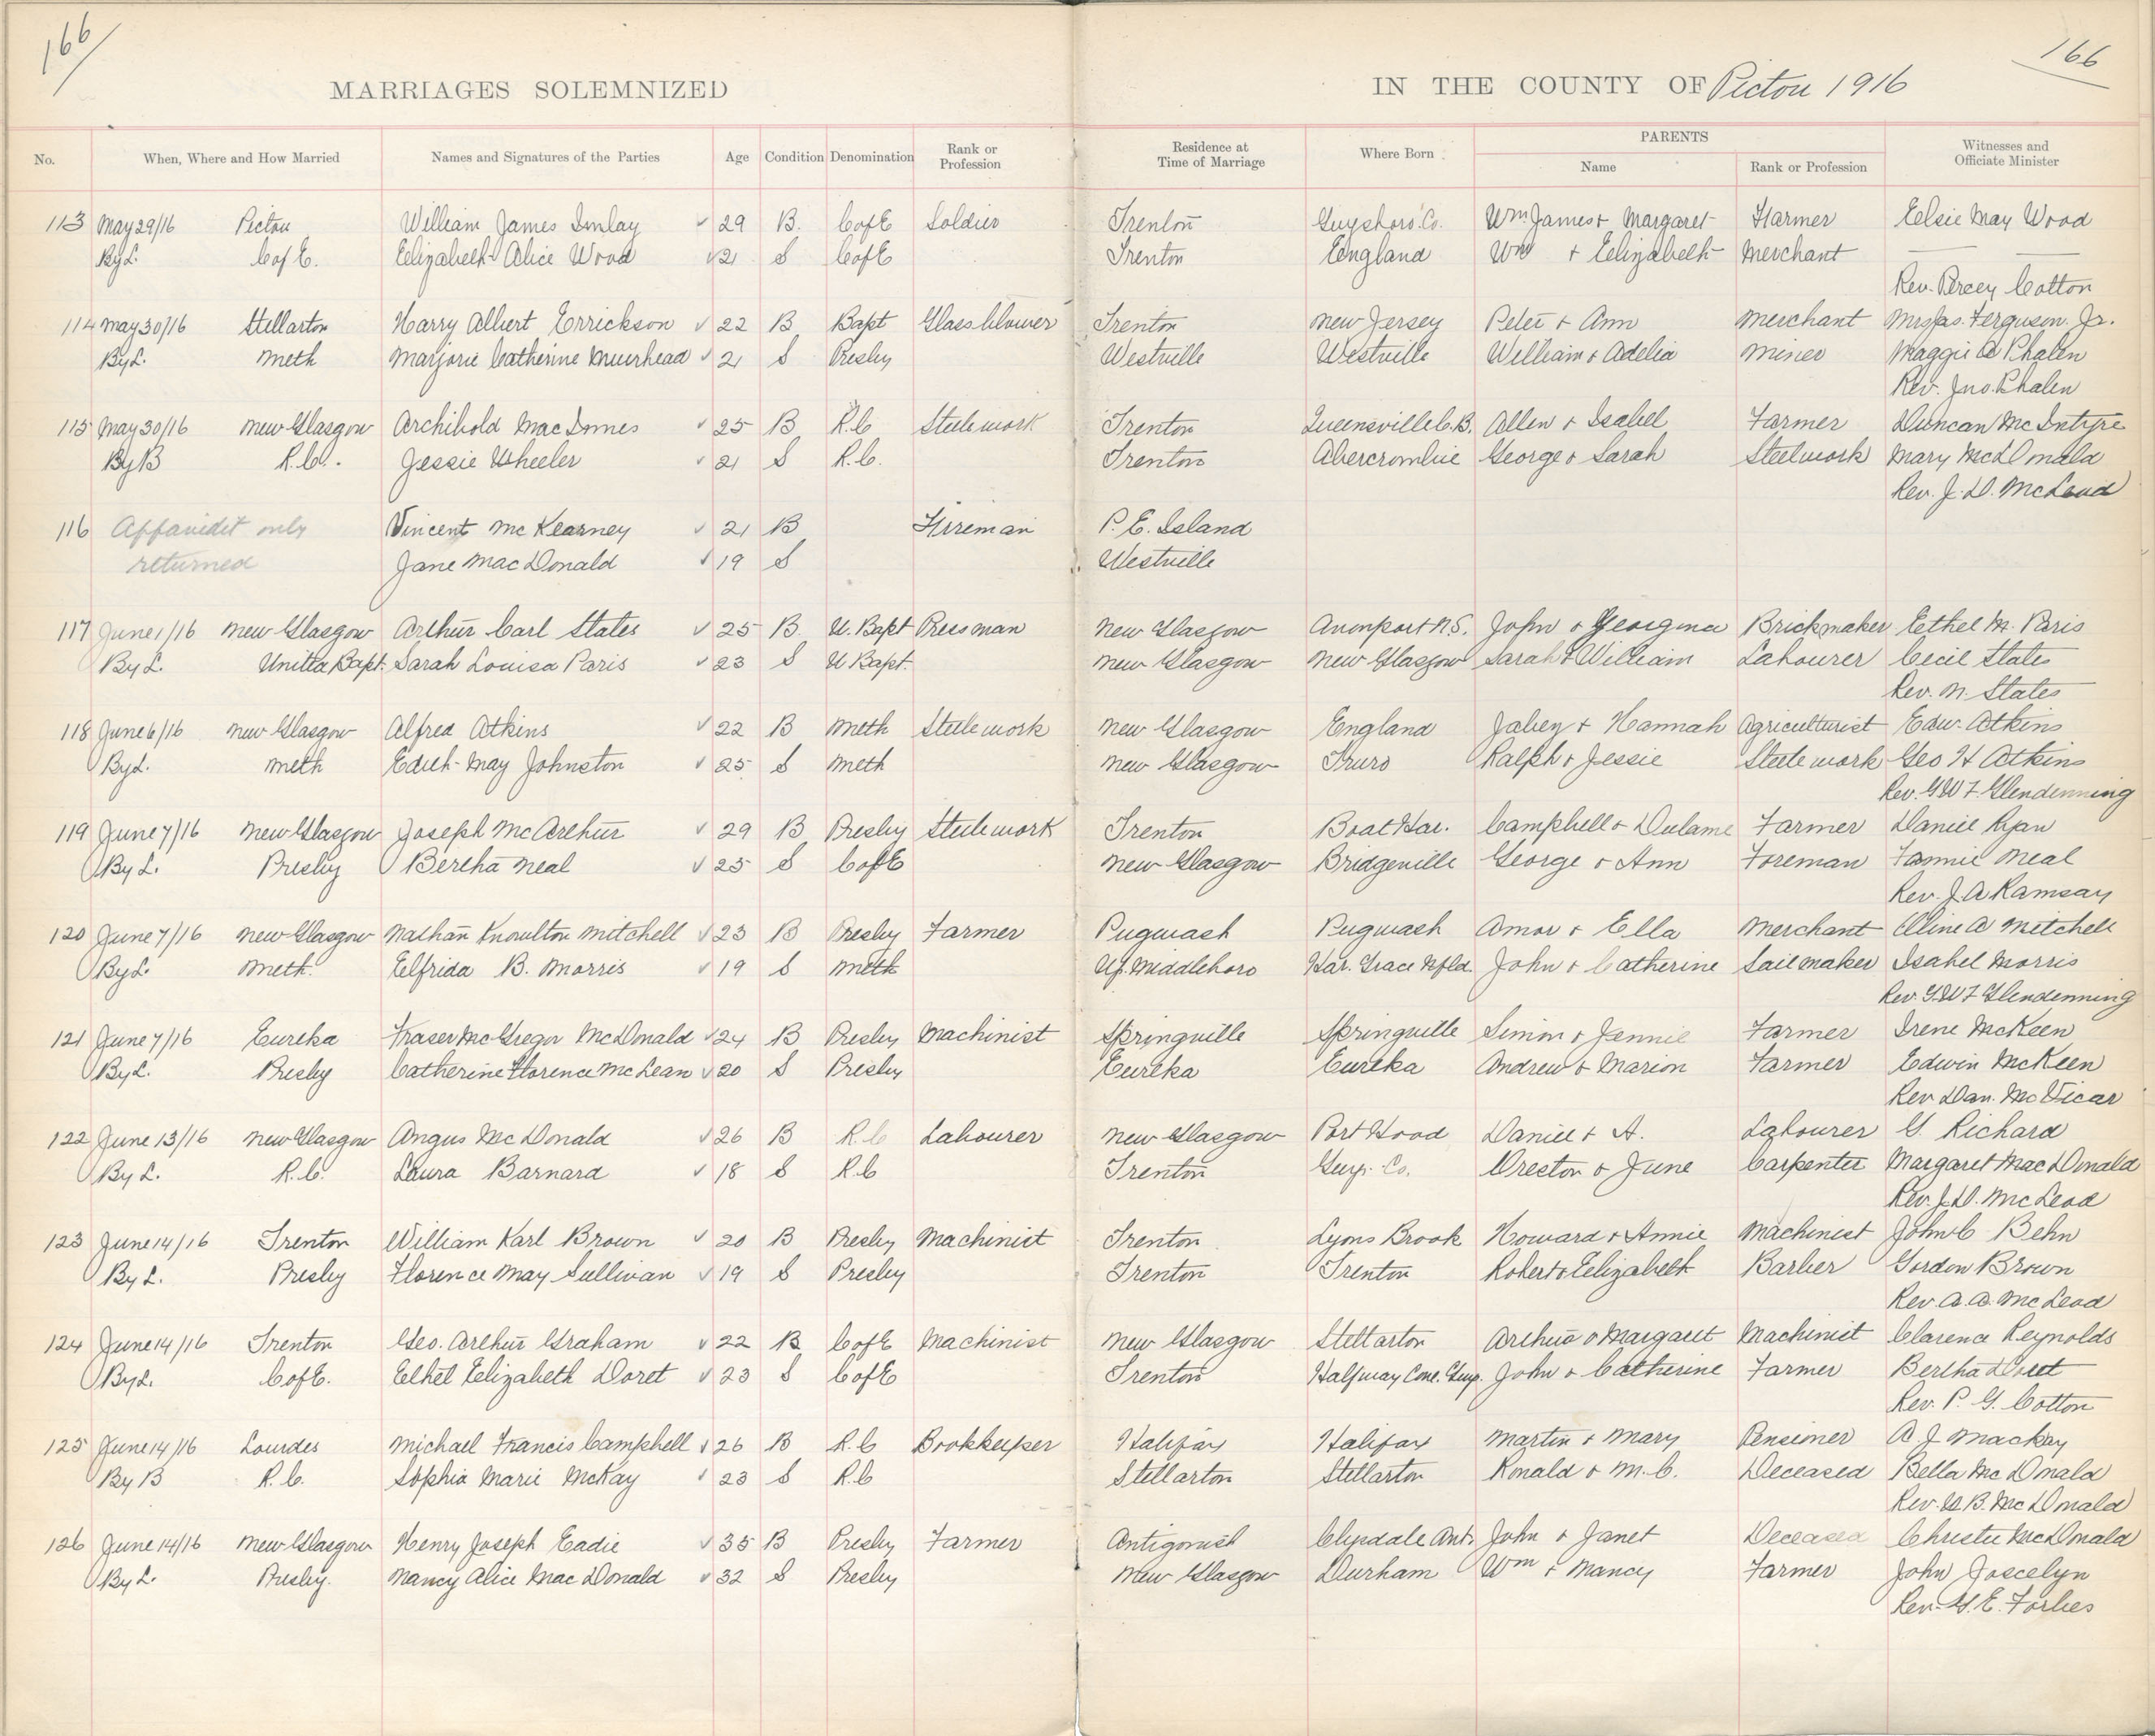 166
166
MARRIAGES SOLEMNIZED IN THE COUNTY OF Pictou 1916
No. When, Where and How Married Names and Signatures of the Parties Age Condition Denomination Rank or Profession Residence at Time of Marriage Where Born PARENTS Name Rank or Profession Witnesses and Officiate Minister
113 May 29/16 Pictou William James Imlay ✓ 29 B. C of E Soldier Trenton Guysboro. Co. Wm James + Margaret Farmer Elsie May Wood
By L. C of E. Elizabeth Alice Wood ✓ 21 S C of E Trenton England Wm + Elizabeth Merchant
Rev. Percy Cotton
114 May 30/16 Stellarton Harry Albert Errickson ✓ 22 B Bapt Glass blower Trenton New Jersey Peter + Ann Merchant Mrs Jas. Ferguson. Jr.
By L. Meth Marjorie Catherine Muirhead ✓ 21 S Presby Westville Westville William + Adelia Miner Maggie A Phalen
Rev. Jno. Phalen
115 May 30/16 New Glasgow Archibold MacInnes ✓ 25 B R.C Steelework Trenton Queensville C.B. Allen + Isabel Farmer Duncan McIntyre
By B R.C. Jessie Wheeler ✓ 21 S R.C. Trenton Abercrombie George + Sarah Steelwork Mary McDonald
Rev. J. D. McLeod
116 Affavidit only Vincent McKearney ✓ 21 B Firreman P. E. Island
returned Jane MacDonald ✓ 19 S Westville
117 June 1/16 New Glasgow Arthur Carl States ✓ 25 B. U. Bapt Pressman New Glasgow Avonport N.S. John + Georgina Brickmaker Ethel M. Paris
By L. United Bapt. Sarah Louisa Paris ✓ 23 S U Bapt. New Glasgow New Glasgow Sarah + William Labourer Cecil States
Rev. W. States
118 June 6/16 New Glasgow Alfred Atkins ✓ 22 B Meth Steelework New Glasgow England Jabez + Hannah Agriculturist Edw. Atkins
By L. Meth Edith May Johnston ✓ 25 S Meth New Glasgow Truro Ralph + Jessie Steelework Geo H Atkins
Rev. G W F Glendenning
119 June 7/16 New Glasgow Joseph McArthur ✓ 29 B Presby Steelework Trenton Boat Har. Campbell + Farmer Daniel Ryan
By L. Presby Bertha Neal ✓ 25 S C of E New Glasgow Bridgeville George + Ann Foreman Fannie Neal
Rev. J. A Ramsay
120 June 7/16 New Glasgow Nathan Knowlton Mitchell ✓ 23 B Presby Farmer Pugwash Pugwash Amor + Ella Merchant Cline A Mitchell
By L. Meth. Elfrida B. Morris ✓ 19 S Meth Up. Middleboro Har. Grace Nfld. John + Catherine Sailmaker Isabel Morris
Rev. G. W F Glendenning
121 June 7/16 Eureka Fraser McGregor McDonald ✓ 24 B Presby Machinist Springville Springville Simon + Jennie Farmer Irene McKeen
By L. Presby Catherine Florence McLean ✓ 20 S Presby Eureka Eureka Andrew + Marion Farmer Edwin McKeen
Rev Dan. McVicar
122 June 13/16 New Glasgow Angus McDonald ✓ 26 B R.C Labourer New Glasgow Port Hood Daniel + A. Labourer G. Richard
By L. R.C. Laura Barnard ✓ 18 S R.C Trenton Guy. Co. Preston + June Carpenter Margaret MacDonald
Rev. J. D. McLeod
123 June 14/16 Trenton William Karl Brown ✓ 20 B Presby Machinist Trenton Lyons Brook Howard + Annie Machinist John C Behn
By L. Presby Florence May Sullivan ✓ 19 S Presby Trenton Trenton Robert + Elizabeth Barber Gordon Brown
Rev. A. A. McLeod
124 June 14/16 Trenton Geo. Arthur Graham ✓ 22 B C of E Machinist New Glasgow Stellarton Arthur + Margaret Machinist Clarence Reynolds
By L. C of E. Ethel Elizabeth Doret ✓ 23 S C of E Trenton Halfway Cove. Guy. John + Catherine Farmer Bertha Doret
Rev. P. G. Cotton
125 June 14/16 Lourdes Michael Francis Campbell ✓ 26 B R.C Bookkeeper Halifax Halifax Martin + Mary Pensioner A J Mackay
By B R.C. Sophia Marie McKay ✓ 23 S R.C Stellarton Stellarton Ronald + M. C. Deceased Bella McDonald
Rev. B. McDonald
126 June 14/16 New Glasgow Henry Joseph Eadie ✓ 35 B Presby Farmer Antigonish Clydale Ant. John + Janet Deceased Christie McDonald
By L. Presby. Nancy Alice MacDonald ✓ 32 S Presby New Glasgow Durham Wm + Nancy Farmer John Joscelyn
Rev. G. E. Forbes